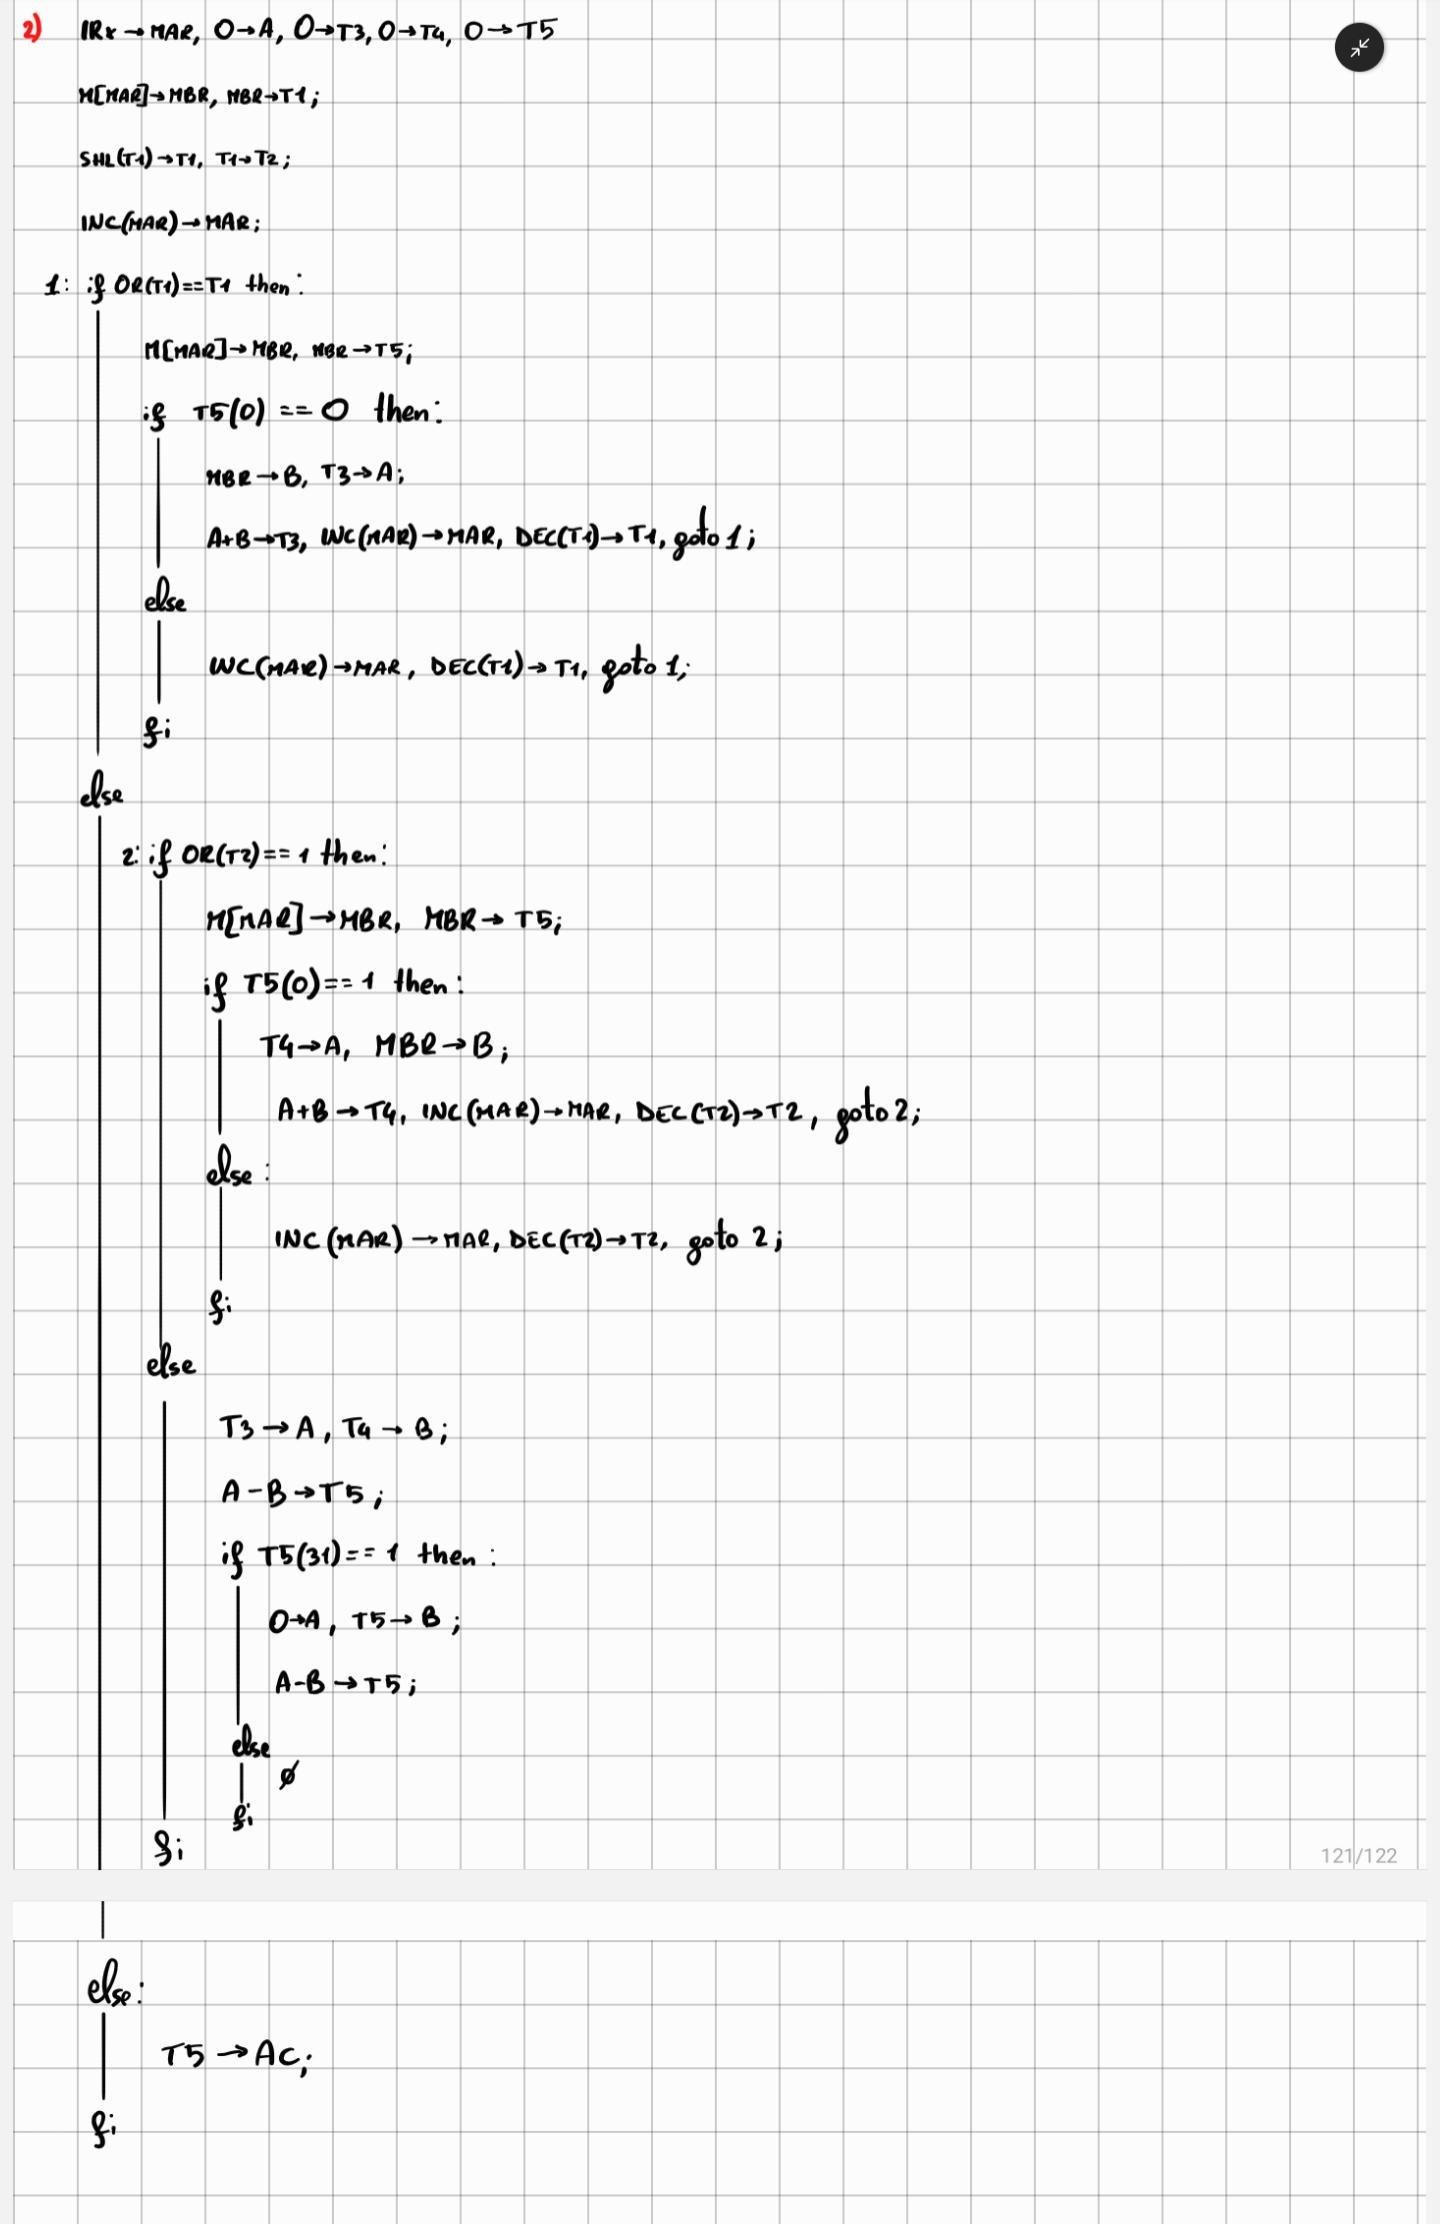 2) IRx → MAR, 0→A, 0→T3, 0→T4, 0→T5
M[MAR]→MBR, MBR→T1;
SHL(T1)→T1, T1→T2;
INC(MAR)→MAR;
1: if OR(T1)==T1 then:
M[MAR]→MBR, MBR→T5;
if T5(0) == 0 then:
MBR→B, T3→A;
A+B→T3, INC(MAR)→MAR, DEC(T1)→T1, goto 1;
else
INC(MAR)→MAR, DEC(T1)→T1, goto 1;
fi
else
2: if OR(T2)==1 then:
M[MAR]→MBR, MBR→T5;
if T5(0)==1 then:
T4→A, MBR→B;
A+B→T4, INC(MAR)→MAR, DEC(T2)→T2, goto 2;
else:
INC(MAR)→MAR, DEC(T2)→T2, goto 2;
fi
else
T3→A, T4→B;
A-B→T5;
if T5(31)==1 then:
0→A, T5→B;
A-B→T5;
else
∅
fi
fi
121/122
else:
T5→AC;
fi